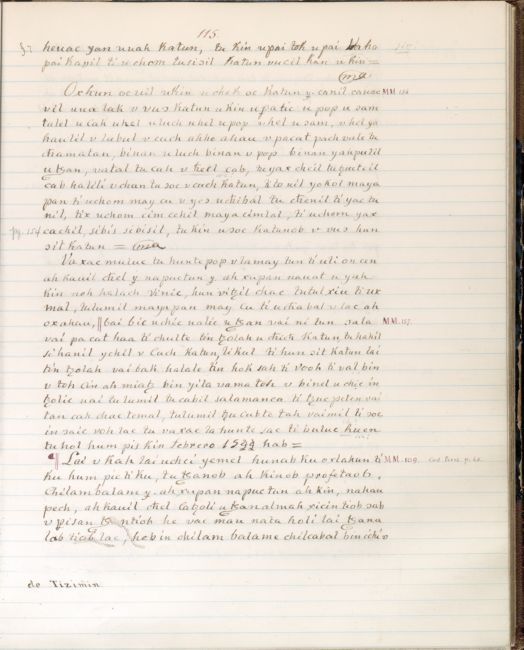 115.
heuac yan uuah katun, tu kin u pai toh u pai
pai kapil ti uchom tusisil katun uucil kan u kin =
Oxhun oc uil u kin u chek oc katun y. canil canoc MM. 156
uil una lak v vus katun u kin u patic u pop u sam
tulel u cah uhel u luch uhel u pop uhel u sam, uhel ya
haulil v lubul v cuch ahho ahau v pacat pach uale tu
dzamatan, binan u luch binan v pop binan yahpulil
u tzan, ualal tu cah v hool cab,
cab halili uchan tu soc v cuch katun, yokol maya
pan ti uchom may cu v yes uchibal tu chenil ti yac tu
nil, tix uchom cim cehil maya cimlal, ti uchom yax
pg. 154 cachil, sibis sibisil, tu kin u soc katunob v vus hun
sit katun =
Uaxac muluc tu hunte pop v lamay tun ti uli on can
ah kauil chel y napuctun y ah xupan nauat u yah
kin noh halach Vinic, hun vitzil chac tutul xiu ti ux
mal, tulumil mayapan may cu ti uchabal v lac ah
oxahau, bai bic uchic nalic u tzan uai ni tun sala MM. 157.
uai pacat haa ti chulte bin tzolah u chich katun tu kahil
si hanil ychil v cuch katun, likul ti hun sit katun lai
bin tzolah uai bak halale bin hok sah ti uooh ti ual bin
v toh cin ah miatz bin yila uama toh v binel uchic in
tzolic uai tulumil tu cabil salamanca ti tzuc peten uai
lan cah chac temal, tulumil tzucubte tah uaimil ti soc
in saic uoh lae tu uaxac la hunte sac ti buluc kuen
tu hol hum pis kin febrero 1544 hab =
Lai v kah lai uchci yemel hunab ku oxlahun ti MM. 109.
ku hum pic ti ku, tu tzanob ah kinob profetaob,
chilam balam y. ah xupan napuctun ah kin, nahau
pech, ah kauil chel tzan almah xicin tiob sab
v pisan tiob he uac mau natu holi lai tzanu
lab tiob lae, heb in chilam balame chilcabal bin
de Tizimin